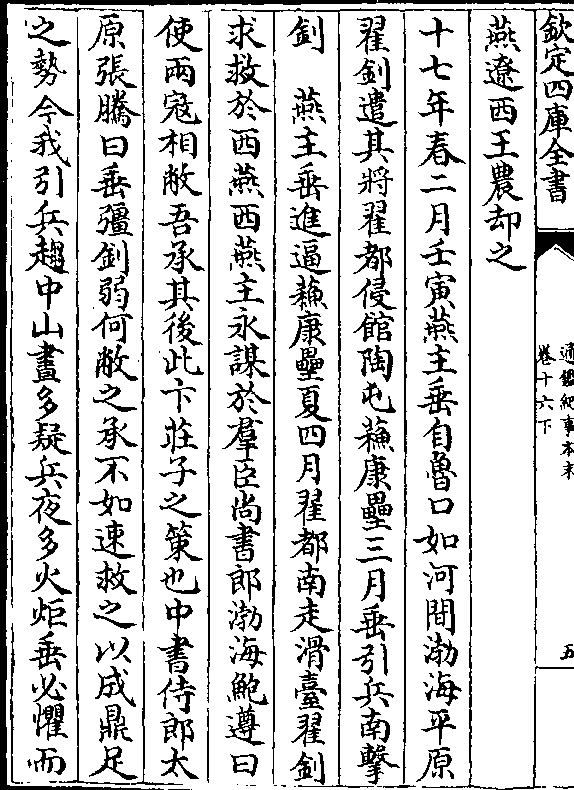 欽定四庫全書
通鑑紀事本末
卷十六下
五
燕遼西王農却之
十七年春二月壬寅燕主垂自魯口如河間渤海平原
翟釗遣其將翟都侵館陶屯蘇康壘三月垂引兵南擊
釗　燕主垂進逼蘇康壘夏四月翟都南走滑臺翟釗
求救於西燕西燕主永謀於羣臣尚書郎渤海鮑遵曰
使兩寇相敝吾承其後此卞莊子之策也中書侍郎太
原張騰曰垂彊釗弱何敝之承不如速救之以成鼎足
之勢今我引兵趨中山晝多疑兵夜多火炬垂必懼而